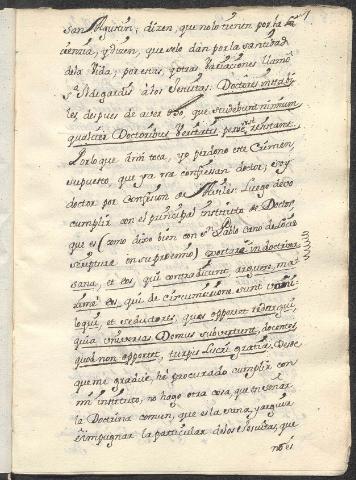 San Agustin; dizen, que no lo tienen por la
ciencia, y dizen, que solo dan por la santidad
de la Vida; por estas, y otras Variaciones llamò
Sta Hildegardis à los Jesuitas: Doctores instabi-
les, despues de aver dho, que studebunt nimium
Doctoribus Veritatis, resistant.
Por lo que à mi toca, yo perdono este Crimen,
supuesto, que ya me confiesan doctor, soy
doctor por Confesion de Luego devo
cumplir con el principal instituto de Doctor,
que es (como dixo bien con Sn Pablo Cano de locis
scriptura in supremmo) Doctore in doctrina
sana, et eos, qui contradicunt, arguere, max
xime eos, qui de circumcisione sunt vani-
loqui, et seductores, quos opportet redargui,
quia universas Domus subvertunt, docentes,
quod non opportet, turpis lucri gratia. Desde
que me gradué, hè procurado cumplir con
mi instituto, no hago otra cosa, que enseñar
la Doctrina comun, que es la sana, y arguir
è impugnar la particular de los Jesuitas, que
no es